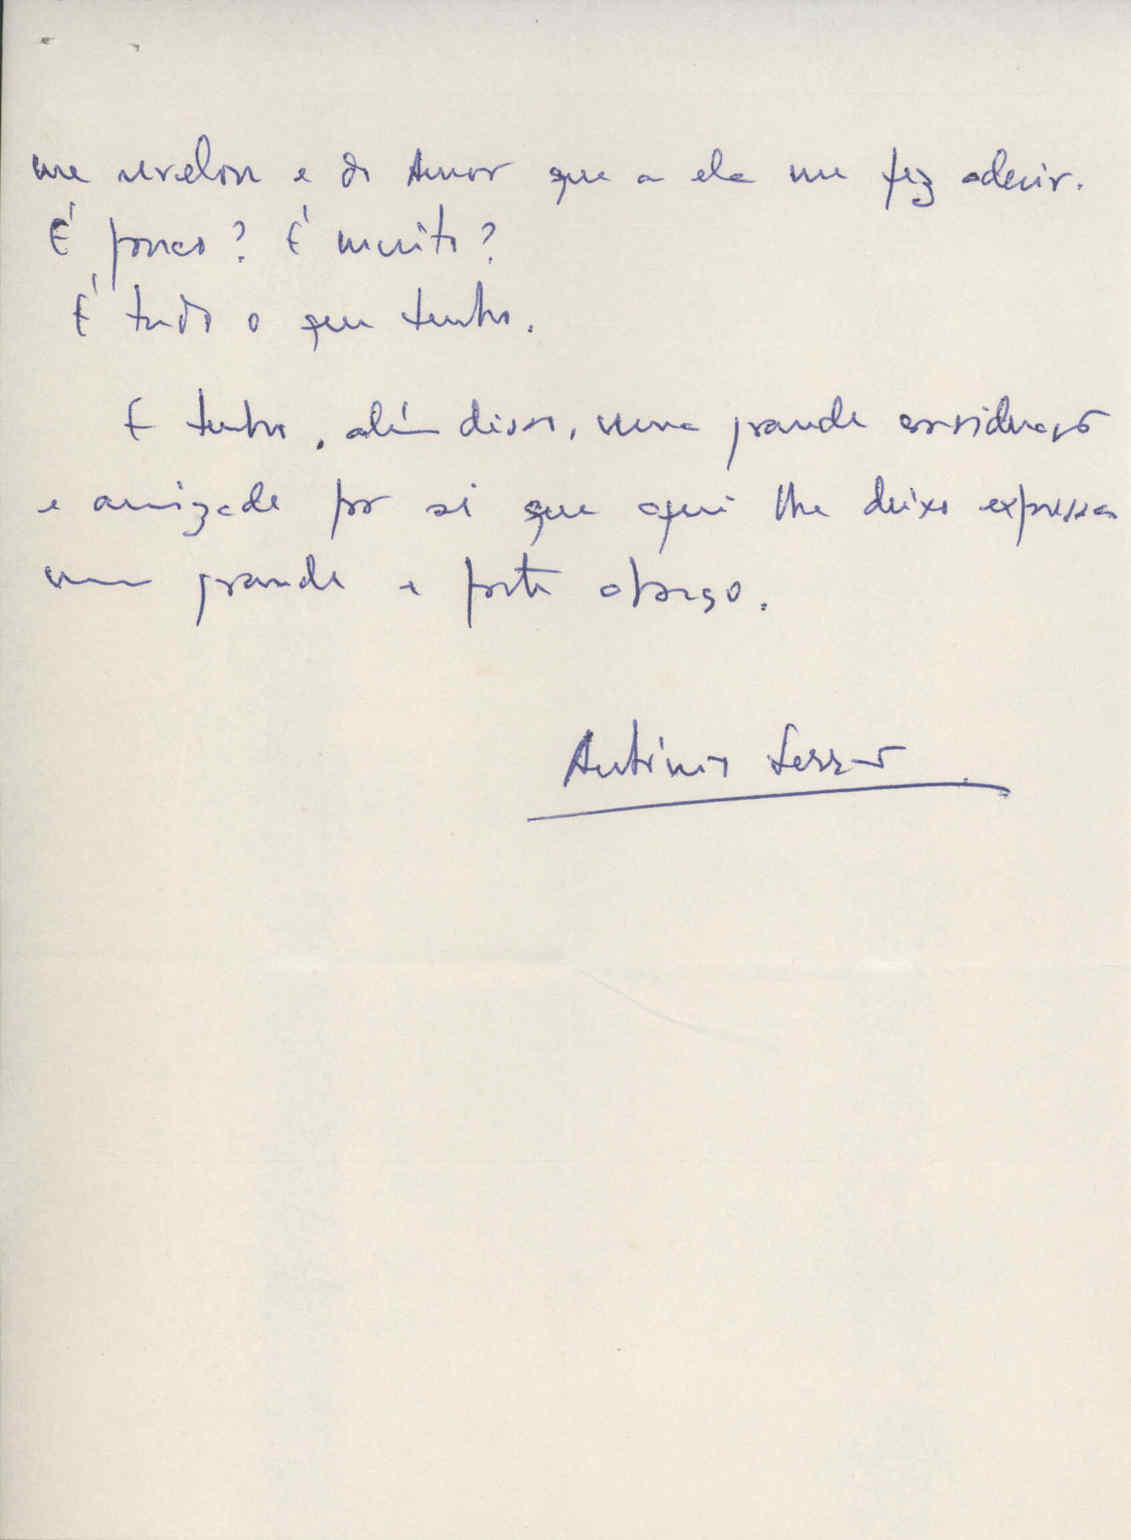 me revelou e do Amor que a ela me fez aderir.
É pouco? É muito?
É tudo o que tenho.
E tenho, além disso, uma grande consideração
e amizade por si que aqui lhe deixo expressa
num grande e forte abraço.
António